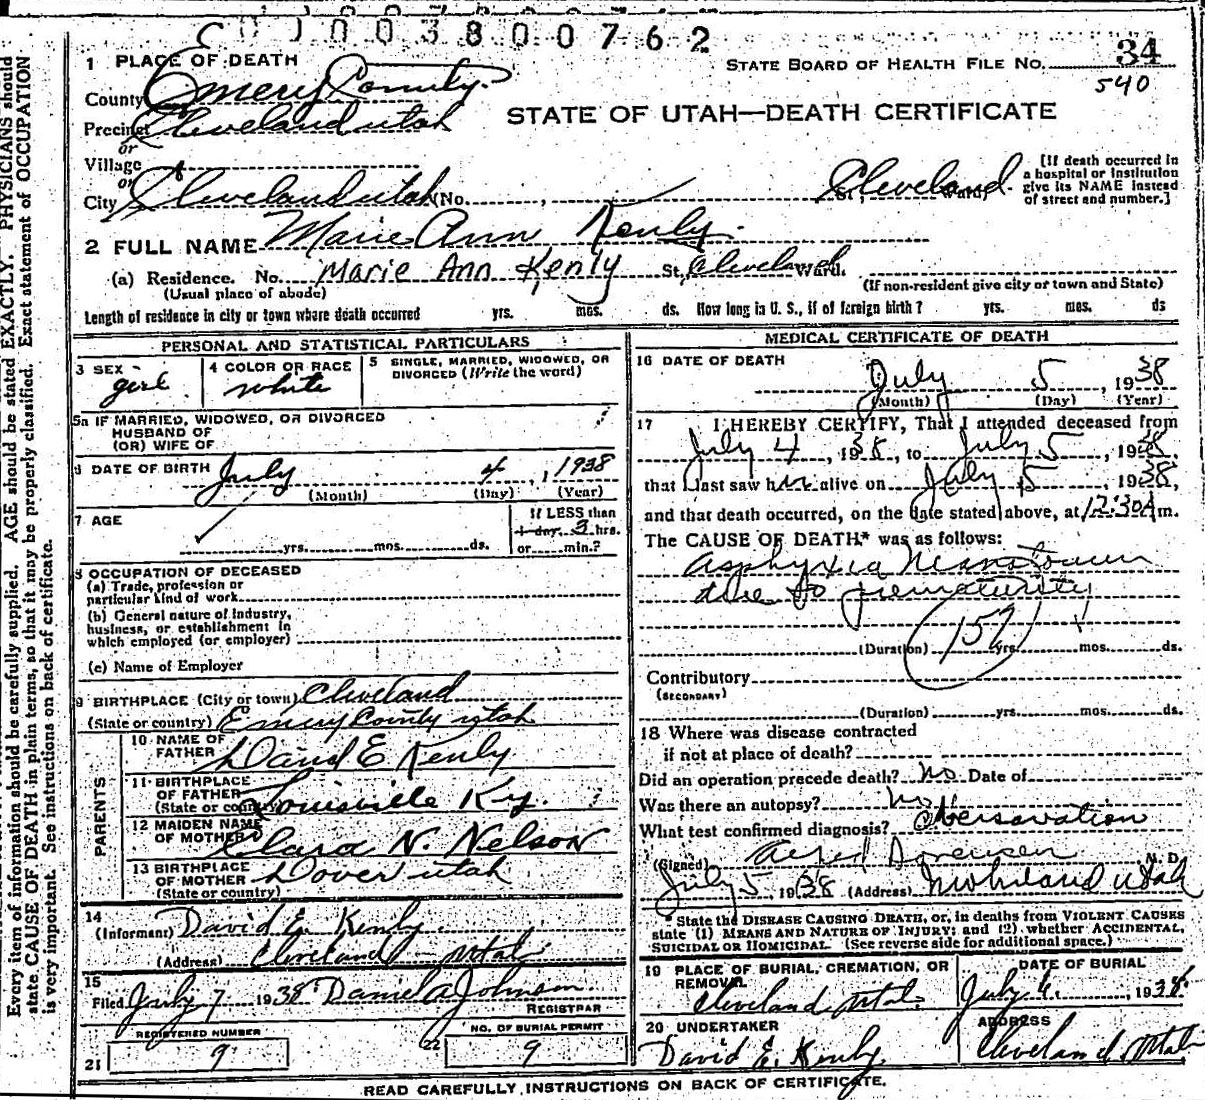 003800762
1 PLACE OF DEATH
STATE BOARD OF HEALTH FILE NO. 34
540
County Emery County.
STATE OF UTAH—DEATH CERTIFICATE
Precinct Cleveland utah
or
Village
or
City Cleveland utah (No. , St., Cleveland Ward)
[If death occurred in
a hospital or institution
give its NAME instead
of street and number.]
2 FULL NAME Marie Ann Kenly.
(a) Residence. No. Marie Ann Kenly St, Cleveland Ward.
(Usual place of abode)
(If non-resident give city or town and State)
Length of residence in city or town where death occurred yrs. mos. ds. How long in U. S., if of foreign birth? yrs. mos. ds
PERSONAL AND STATISTICAL PARTICULARS
3 SEX
girl
4 COLOR OR RACE
white
5 SINGLE, MARRIED, WIDOWED, OR
DIVORCED (Write the word)
5a IF MARRIED, WIDOWED, OR DIVORCED
HUSBAND OF
(OR) WIFE OF
6 DATE OF BIRTH July 4, 1938
(Month) (Day) (Year)
7 AGE
yrs. mos. ds.
If LESS than
1 day, 3 hrs.
or min.?
8 OCCUPATION OF DECEASED
(a) Trade, profession or
particular kind of work
(b) General nature of industry,
business, or establishment in
which employed (or employer)
(c) Name of Employer
9 BIRTHPLACE (City or town) Cleveland
(State or country) Emery County utah
PARENTS
10 NAME OF
FATHER David E Kenly
11 BIRTHPLACE
OF FATHER
(State or country) Louisville Ky.
12 MAIDEN NAME
OF MOTHER Clara N. Nelson
13 BIRTHPLACE
OF MOTHER Dover utah
(State or country)
14
(Informant) David E. Kenly
(Address) Cleveland Utah
15
Filed July 7 1938 Daniel A Johnson
REGISTRAR
REGISTERED NUMBER
21 9
NO. OF BURIAL PERMIT
22 9
MEDICAL CERTIFICATE OF DEATH
16 DATE OF DEATH
July 5, 1938
(Month) (Day) (Year)
17 I HEREBY CERTIFY, That I attended deceased from
July 4, 1938, to July 5, 1938,
that I last saw her alive on July 5, 1938,
and that death occurred, on the date stated above, at 12:30 A m.
The CAUSE OF DEATH* was as follows:
Asphyxia Neonatorum
due to prematurity
159
(Duration) yrs. mos. ds.
Contributory
(SECONDARY)
(Duration) yrs. mos. ds.
18 Where was disease contracted
if not at place of death?
Did an operation precede death? No Date of
Was there an autopsy? No
What test confirmed diagnosis? Obversavation
(Signed) M. D.
July 5, 1938 (Address) Utah
*State the DISEASE CAUSING DEATH, or, in deaths from VIOLENT CAUSES
state (1) MEANS AND NATURE OF INJURY; and (2) whether ACCIDENTAL,
SUICIDAL OR HOMICIDAL (See reverse side for additional space.)
19 PLACE OF BURIAL, CREMATION, OR
REMOVAL
Cleveland Utah
DATE OF BURIAL
July 6, 1938
20 UNDERTAKER
David E. Kenly
ADDRESS
Cleveland Utah
READ CAREFULLY INSTRUCTIONS ON BACK OF CERTIFICATE.
Every item of information should be carefully supplied. AGE should be stated EXACTLY. PHYSICIANS should
state CAUSE OF DEATH in plain terms, so that it may be properly classified. Exact statement of OCCUPATION
is very important. See instructions on back of certificate.